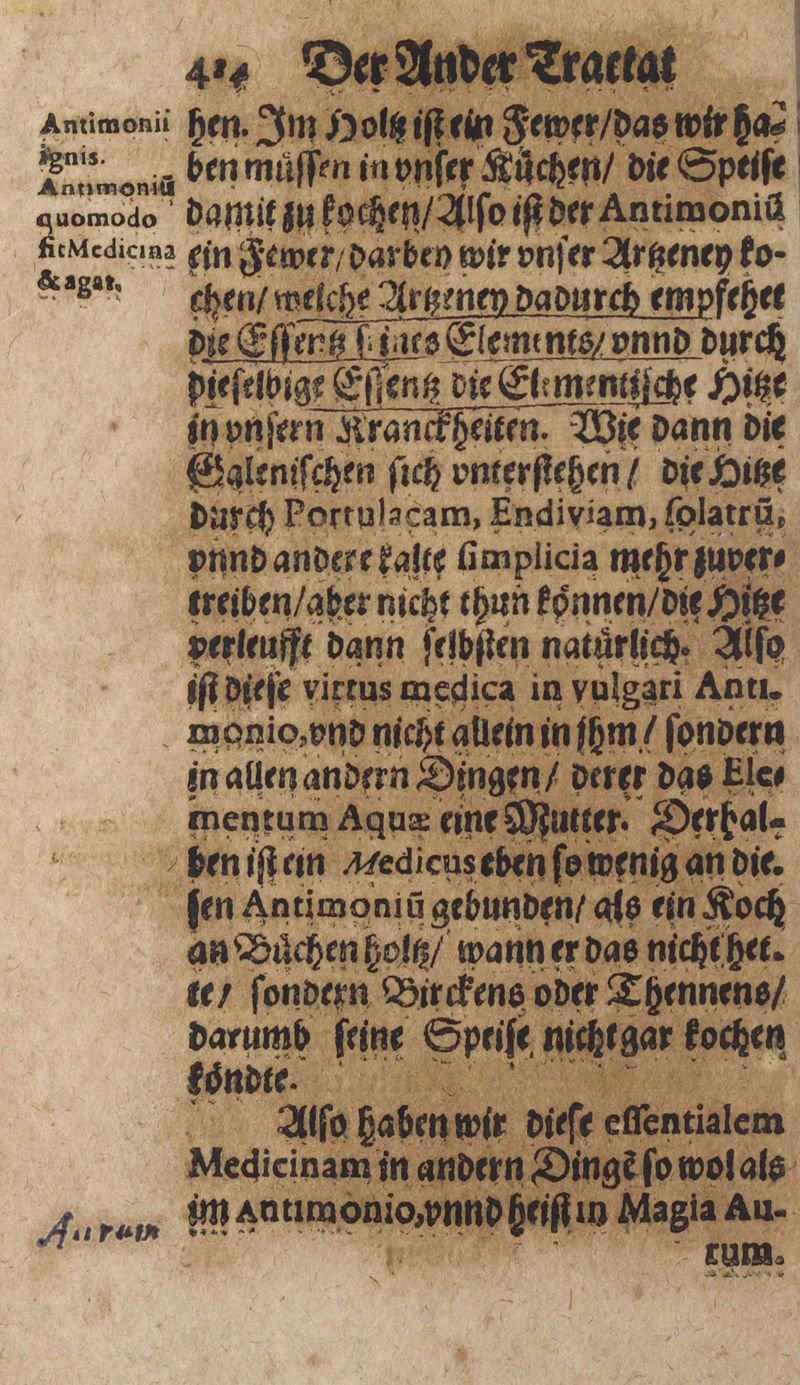 414 Der Ander Tractat
Antimonii
ignis.
Antimoniũ
quomodo
fit Medicina
& agat.
hen. Im Holtz ist ein Fewer/das wir ha-
ben müssen in vnser Küchen/ die Speise
damit zu kochen/Also ist der Antimoniũ
ein Fewer/darbey wir vnser Artzeney ko-
chen/ welche Artzeney dadurch empfehet
die Essentz seines Elements/ vnnd durch
dieselbige Essentz die Elementische Hitze
in vnsern Kranckheiten. Wie dann die
Galenischen sich vnterstehen/ die Hitze
durch Portulacam, Endiviam, solatrũ,
vnnd andere kalte simplicia mehr zuver-
treiben/aber nicht thun können/die Hitze
verleufft dann selbsten natürlich. Also
ist diese virtus medica in vulgari Anti-
monio, vnd nicht allein in jhm/ sondern
in allen andern Dingen/ derer das Ele-
mentum Aquæ eine Mutter. Derhal-
ben ist ein Medicus eben so wenig an die-
sen Antimoniũ gebunden/ als ein Koch
an Büchen holtz/ wann er das nicht het-
te/ sondern Birckens oder Thennens/
darumb seine Speise nicht gar kochen
köndte.
Also haben wir diese essentialem
Medicinam in andern Dingẽ so wol als
im Antimonio, vnnd heist in Magia Au-
Aurum
rum.